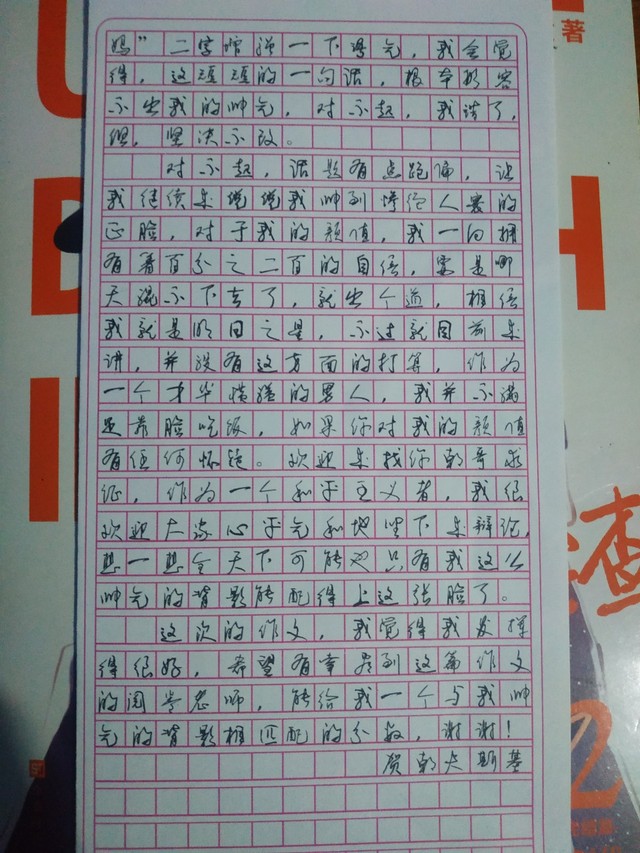 著
妈”二字增强一下语气，我会觉
得，这短短的一句话，根本形容
不出我的帅气，对不起，我读了，
但，坚决不改。
对不起，话题有点跑偏，让
我继续来说说我帅到惨绝人寰的
正脸，对于我的颜值，我一向拥
有着百分之二百的自信，要是哪
天混不下去了，就出个道，相信
我就是明日之星，不过就目前来
讲，并没有这方面的打算，作为
一个才华横溢的男人，我并不满
足靠脸吃饭，如果你对我的颜值
有任何怀疑。欢迎来找你朝哥求
证，作为一个和平主义者，我很
欢迎大家心平气和地坐下来辩论，
想一想全天下可能也只有我这么
帅气的背影能配得上这张脸了。
这次的作文，我觉得我发挥
得很好，希望有幸看到这篇作文
的阅卷老师，能给我一个与我帅
气的背影相匹配的分数，谢谢！
贺朝夫斯基
查
2